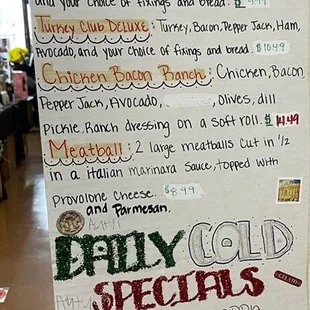 and your choice of fixings and bread. $9.99
Turkey Club Deluxe: Turkey, Bacon, Pepper Jack, Ham,
Avocado, and your choice of fixings and bread. $10.49
Chicken Bacon Ranch: Chicken, Bacon
Pepper Jack, Avocado, Olives, dill
Pickle, Ranch dressing on a soft roll. $11.49
Meatball: 2 large meatballs cut in 1/2
in a italian marinara sauce, topped with
Provolone Cheese. $8.99
and Parmesan.
DAILY COLD
SPECIALS